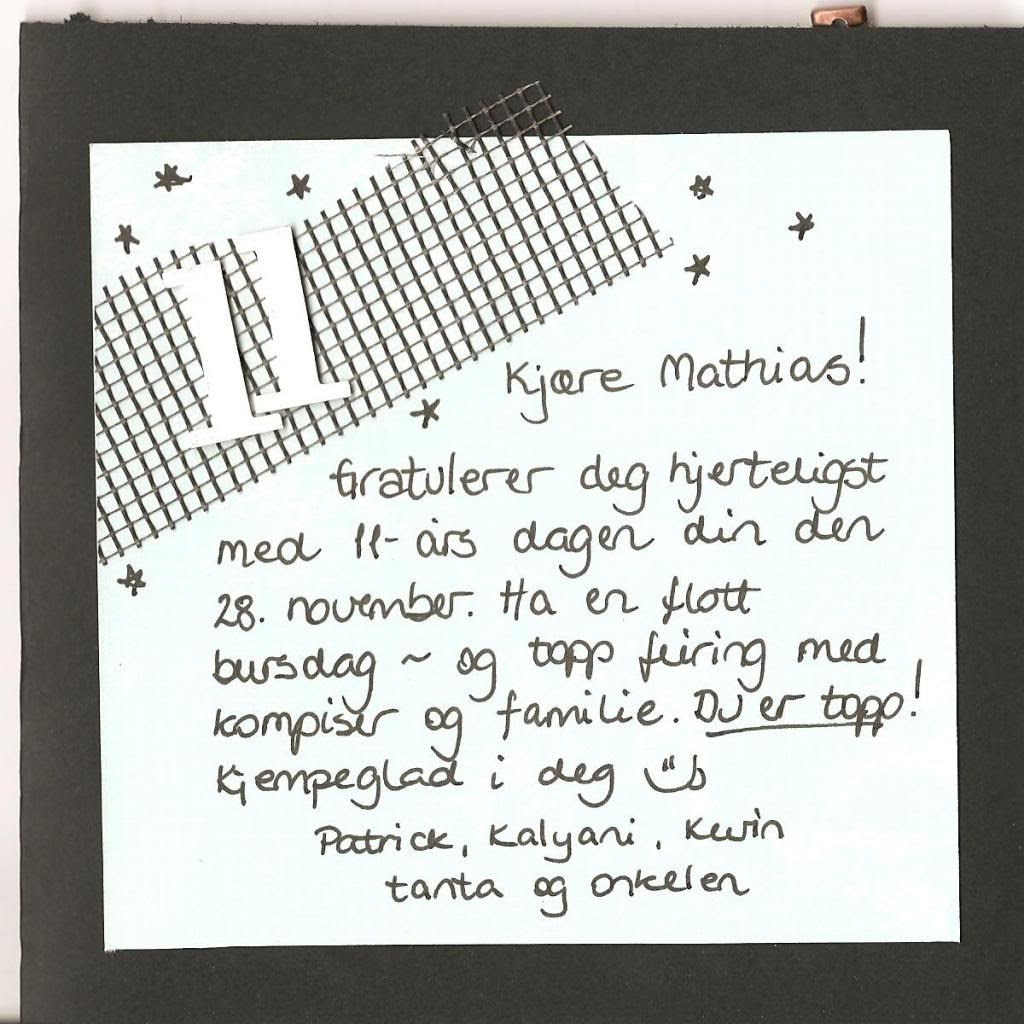 11
Kjære Mathias!
Gratulerer deg hjerteligst
med 11-års dagen din den
28. november. Ha en flott
bursdag ~ og topp feiring med
kompiser og familie. Du er topp!
Kjempeglad i deg
Patrick, Kalyani, Kevin
tanta og onkelen